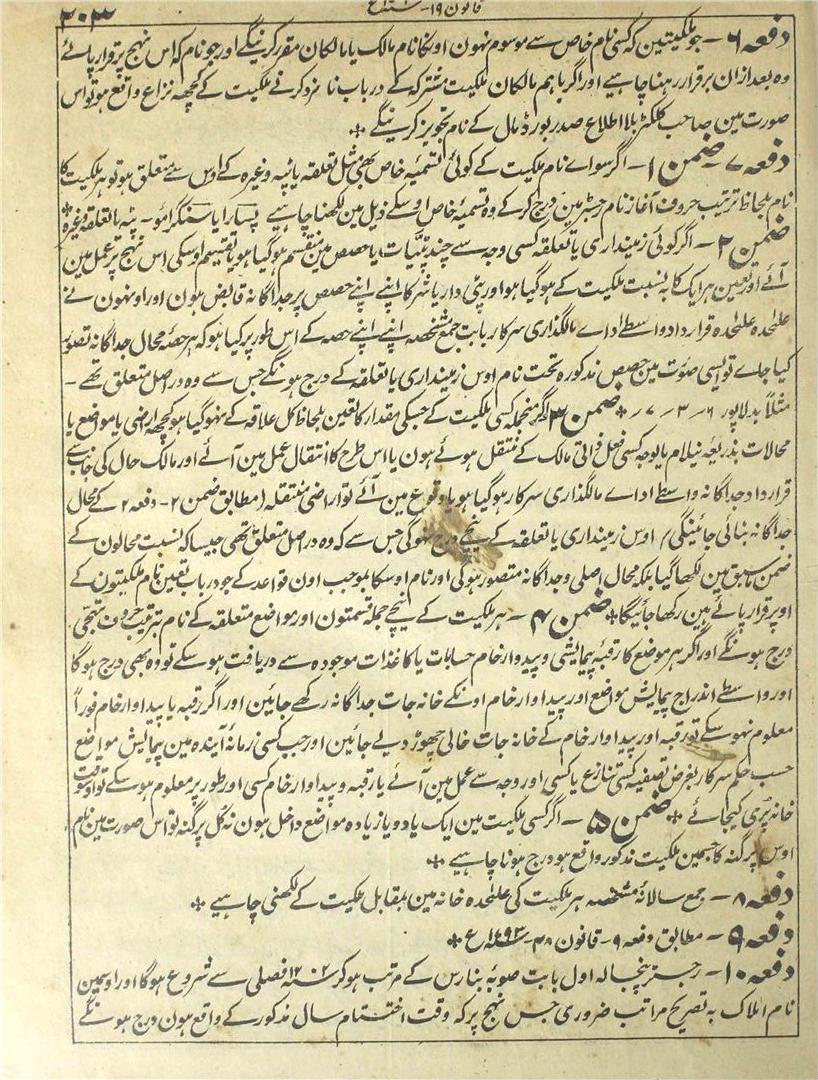 ۲۰۳ قانون ۱۹
دفعہ ۶ - جو ملکیتین کہ کسی نام خاص سے موسوم نہون اونکا نام مالک یا مالکان مقرر کرینگے اور جو نام کہ اس نہج پر قرار پائے
وہ بعد ازان برقرار رہنا چاہیے اور اگر باہم مالکان ملکیت مشترکہ کے درباب نامزد کرنے ملکیت کے کچھہ نزاع واقع ہو تو اس
صورت مین صاحب کلکٹر بلا اطلاع صدر بورڈ مال کے نام تجویز کرینگے *
دفعہ ۷ - ضمن ۱ - اگر سواے نام ملکیت کے کوئی تسمیۂ خاص بھی مثل تعلقہ یا پٹہ وغیرہ کے اوس سے متعلق ہو تو ہر ملکیت کا
نام بلحاظ ترتیب حروف آغاز نام رجسٹر مین درج کر کے وہ تسمیۂ خاص اوسکے ذیل مین لکھنا چاہیے پٹہ یا تعلقہ وغیرہ *
ضمن ۲ - اگر کوئی زمینداری یا تعلقہ کسی وجہ سے چند پٹیات یا حصص مین منقسم ہو گیا ہو یا تقسیم اوسکی اس نہج پر عمل مین
آئے اور تعین ہر ایک کا بہ نسبت ملکیت کے ہو گیا ہو اور پٹی دار یا شرکا اپنے اپنے حصص پر جداگانہ قابض ہون اور اونہون نے
علٰحدہ علٰحدہ قرارداد واسطے اداے مالگذاری سرکار بابت جمع مشخصہ اپنے اپنے حصہ کے اس طور پر کیا ہو کہ ہر حصہ محال جداگانہ تصور
کیا جاے تو ایسی صورت مین حصص مذکورہ تحت نام اوس زمینداری یا تعلقہ کے درج ہونگے جس سے وہ دراصل متعلق تھے -
مثلاً بدلاپور ۶ - ۳ - ۷ - * ضمن ۳ - اگر منجملہ کسی ملکیت کے جسکی مقدار کا تعین بلحاظ کل علاقہ کے نہو گیا ہو کچھہ اراضی یا مواضع یا
محالات بذریعہ نیلام یا بوجہ کسی فعل ذاتی مالک کے منتقل ہوئے ہون یا اس طرح کا انتقال عمل مین آئے اور مالک حال کی جانب سے
قرارداد جداگانہ واسطے اداے مالگذاری سرکار ہو گیا ہو یا وقوع مین آئے تو اراضی منتقلہ (مطابق ضمن ۲ - دفعہ ۲ کے محال
جداگانہ بنائی جائینگی) اوس زمینداری یا تعلقہ کے نیچے درج نہوگی جس سے کہ وہ دراصل متعلق تھی جیسا کہ نسبت محالون کے
ضمن سابق مین لکھا گیا بلکہ محال اصلی و جداگانہ متصور ہوگی اور نام اوسکا بموجب اون قواعد کے جو درباب تعین نام ملکیتون کے
اوپر قرار پائے ہین رکھا جائیگا * ضمن ۴ - ہر ملکیت کے نیچے جملہ قسمتون اور مواضع متعلقہ کے نام بترتیب حروف تہجی
درج ہونگے اور اگر ہر موضع کا رقبۂ پیمایشی و پیداوار خام حسابات یا کاغذات موجودہ سے دریافت ہو سکے تو وہ بھی درج ہوگا
اور واسطے اندراج پیمایش مواضع اور پیداوار خام اونکے خانہ جات جداگانہ رکھے جائین اور اگر رقبہ یا پیداوار خام فوراً
معلوم نہو سکے تو رقبہ اور پیداوار خام کے خانہ جات خالی چھوڑ دیے جائین اور جب کسی زمانۂ آیندہ مین پیمایش مواضع
حسب حکم سرکار بغرض تصفیہ کسی تنازع یا کسی اور وجہ سے عمل مین آئے یا رقبہ و پیداوار خام کسی اور طور پر معلوم ہو سکے تو اوسوقت
خانہ پری کیجائے * ضمن ۵ - اگر کسی ملکیت مین ایک یا دو یا زیادہ مواضع داخل ہون نہ کل پرگنہ تو اس صورت مین نام
اوس پرگنہ کا جسمین ملکیت مذکور واقع ہو درج ہونا چاہیے *
دفعہ ۸ - جمع سالانہ مشخصہ ہر ملکیت کی علٰحدہ خانہ مین بمقابل ملکیت کے لکھنی چاہیے *
دفعہ ۹ - مطابق دفعہ ۹ - قانون ۴۸ - ۱۷۹۳ع *
دفعہ ۱۰ - رجسٹر پنجسالہ اول بابت صوبۂ بنارس کے مرتب ہو کر ۱۲۰۲ فصلی سے شروع ہوگا اور اوسمین
نام املاک بہ تصریح مراتب ضروری جس نہج پر کہ وقت اختتام سال مذکور کے واقع ہون درج ہونگے